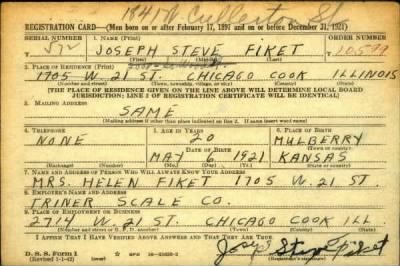 REGISTRATION CARD—(Men born on or after February 17, 1897 and on or before December 31, 1921)
SERIAL NUMBER 1. NAME (Print) ORDER NUMBER
JOSEPH STEVE FIKET 10,599
(First) (Middle) (Last)
2. PLACE OF RESIDENCE (Print)
1705 W. 21 ST. CHICAGO COOK ILLINOIS
(Number and street) (Town, township, village, or city) (County) (State)
[THE PLACE OF RESIDENCE GIVEN ON THE LINE ABOVE WILL DETERMINE LOCAL BOARD
JURISDICTION; LINE 2 OF REGISTRATION CERTIFICATE WILL BE IDENTICAL]
3. MAILING ADDRESS
SAME
[Mailing address if other than place indicated on line 2. If same insert word same]
4. TELEPHONE 5. AGE IN YEARS 6. PLACE OF BIRTH
NONE 20 MULBERRY
DATE OF BIRTH (Town or county)
MAY 6 1921 KANSAS
(Exchange) (Number) (Mo.) (Day) (Yr.) (State or country)
7. NAME AND ADDRESS OF PERSON WHO WILL ALWAYS KNOW YOUR ADDRESS
MRS. HELEN FIKET 1705 W. 21 ST.
8. EMPLOYER'S NAME AND ADDRESS
TRINER SCALE CO.
9. PLACE OF EMPLOYMENT OR BUSINESS
2714 W. 21 ST. CHICAGO COOK ILL
(Number and street or R. F. D. number) (Town) (County) (State)
I AFFIRM THAT I HAVE VERIFIED ABOVE ANSWERS AND THAT THEY ARE TRUE.
D. S. S. Form 1
(Revised 1-1-42) (over)
Joseph Steve Fiket